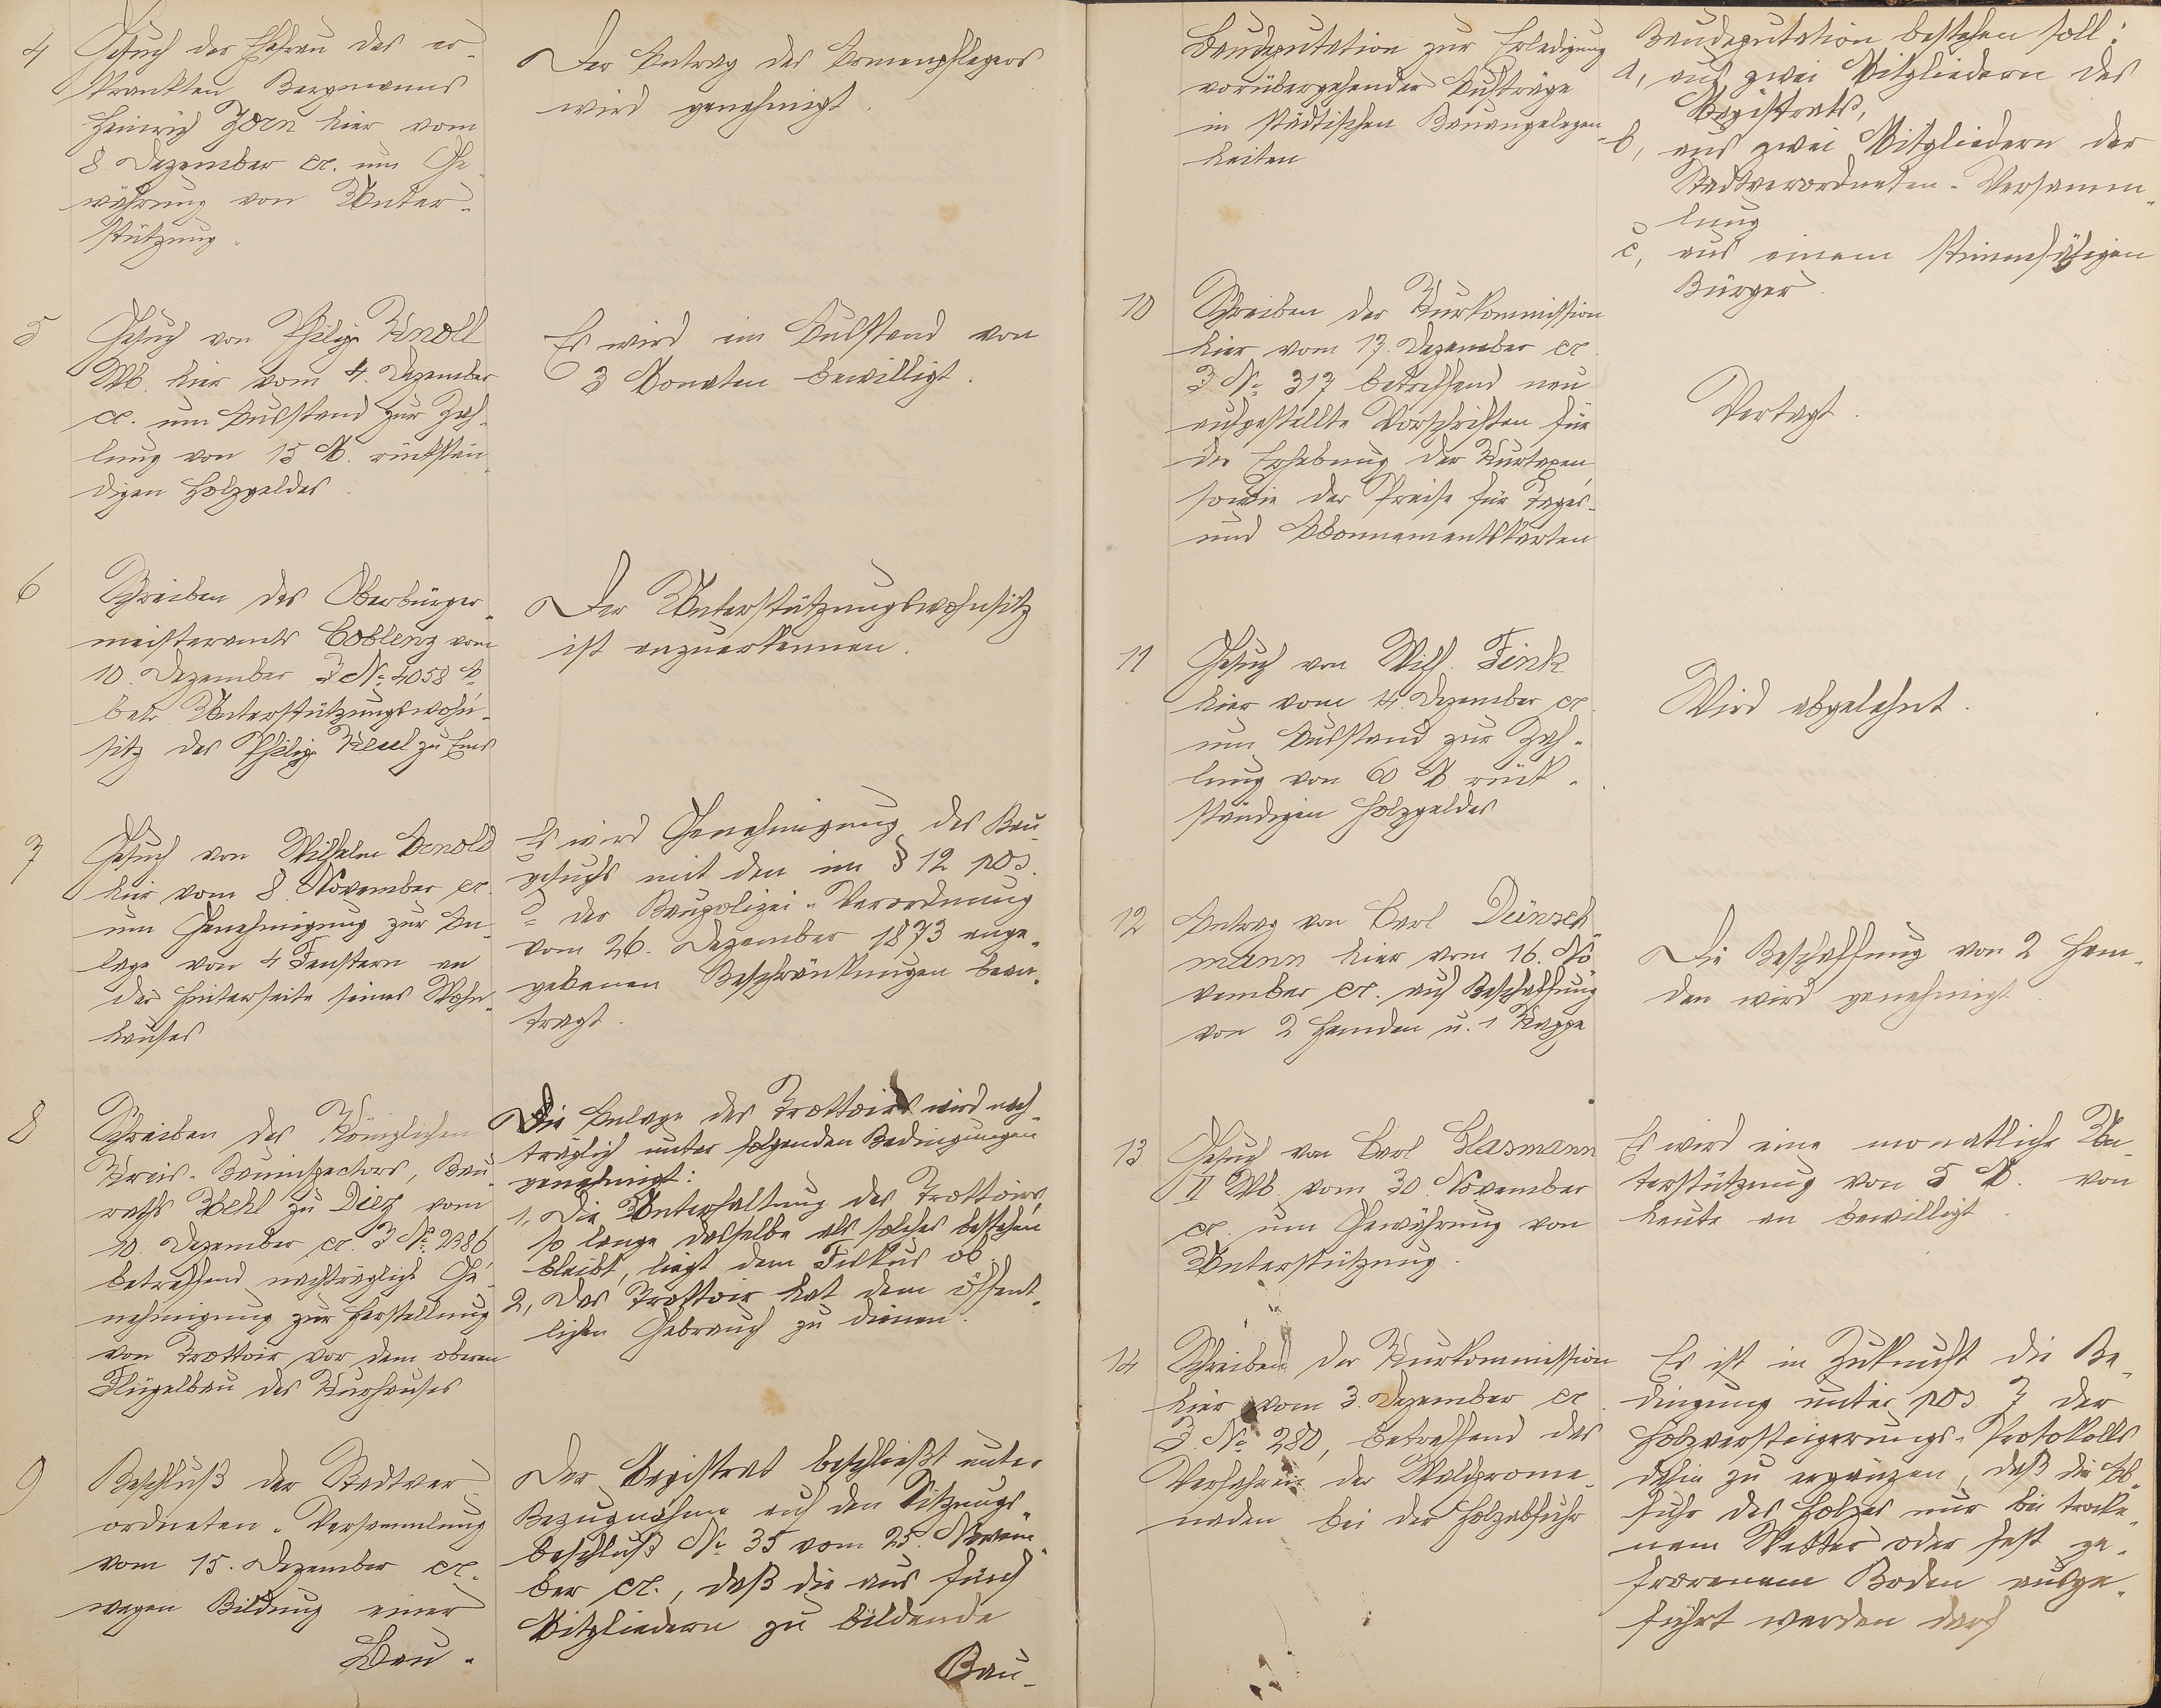 4
Gesuch der Ehefrau des er-
krankten Bergmanns
Heinrich Zorn hier vom
8 Dezember cr. um Ge-
währung von Unter-
stützung.
Der Antrag des Armenpflegers
wird genehmigt.
5
Gesuch von Philip Knoll
Wb. hier vom 4. Dezember
cr. um Ausstand zur Zah-
lung von 15 M. rückstän-
digen Holzgeldes.
Es wird ein Ausstand von
3 Monaten bewilligt.
6
Schreiben des Oberbürger-
meisteramts Coblenz vom
10. Dezember J No 4058
betr Unterstützungswohn-
sitz des Philip zu Ems
Der Unterstützungswohnsitz
ist anzuerkennen.
7
Gesuch von Wilhelm Arnold
hier vom 8. November cr.
um Genehmigung zur An-
lage von 4 Fenstern an
der Hinterseite seines Wohn-
hauses
Es wird Genehmigung des Bau-
gesuchs mit den im § 12 pos.
2 der Baupolizei-Verordnung
vom 26. Dezember 1873 ange-
gebenen Beschränkungen bean-
tragt.
8
Schreiben des Königlichen
Kreis-Bauinspectors, Bau-
raths Hehl zu Diez vom
10. Dezember cr. J No 2386
betreffend nachträgliche Ge-
nehmigung zur Herstellung
von Trottoir vor dem oberen
Flügelbau des Kurhauses
Die Anlage des Trottoirs wird nach-
träglich unter folgenden Bedingungen
genehmigt:
1, Die Unterhaltung des Trottoirs,
so lange dasselbe als solches bestehen
bleibt, liegt dem Fiskus ob.
2, Das Trottoir hat dem öffent-
lichen Gebrauch zu dienen.
9
Beschluß der Stadtver-
ordneten-Versammlung
vom 15. Dezember cr.
wegen Bildung einer
Bau-
Der Magistrat beschließt unter
Bezugnahme auf den Sitzungs-
beschluß No 35 vom 25. Novem-
ber cr., daß die aus fünf
Mitgliedern zu bildende
Bau-
Baudeputation zur Erledigung
vorübergehender Aufträge
in städtischen Bauangelegen-
heiten
Baudeputation bestehen soll:
a, aus zwei Mitgliedern des
Magistrats,
b, aus zwei Mitgliedern der
Stadtverordneten-Versamm-
lung
c, aus einem stimmfähigen
Bürger.
10
Schreiben der Kurkommission
hier vom 17. Dezember cr.
J No 317 betreffend neu
aufgestellte Vorschriften für
die Erhebung der Kurtaxen
sowie der Preise für Tages-
und Abonnementskarten
Vertagt.
11
Gesuch von Wilh. Fink
hier vom 14. Dezember cr.
um Ausstand zur Zah-
lung von 60 M rück-
ständigen Holzgeldes
Wird abgelehnt.
12
Antrag von Carl Dünsch-
mann hier vom 16. No-
vember cr. auf Beschaffung
von 2 Hemden u. 1 Kappe
Die Beschaffung von 2 Hem-
den wird genehmigt.
13
Gesuch von Carl Glasmann
II Wb. vom 30. November
cr. um Gewährung von
Unterstützung.
Es wird eine monatliche Un-
terstützung von 5 M. von
heute an bewilligt.
14
Schreiben der Kurkommission
hier vom 3. Dezember cr.
J. No 280, betreffend das
Verfahren der Waldprome-
naden bei der Holzabfuhr
Es ist in Zukunft die Be-
dingung unter pos. 7 der
Holzversteigerungs-Protokolls
dahin zu ergänzen, daß die Ab-
fuhr des Holzes nur bei trocke-
nem Wetter oder fest ge-
frorenem Boden ausge-
führt werden darf